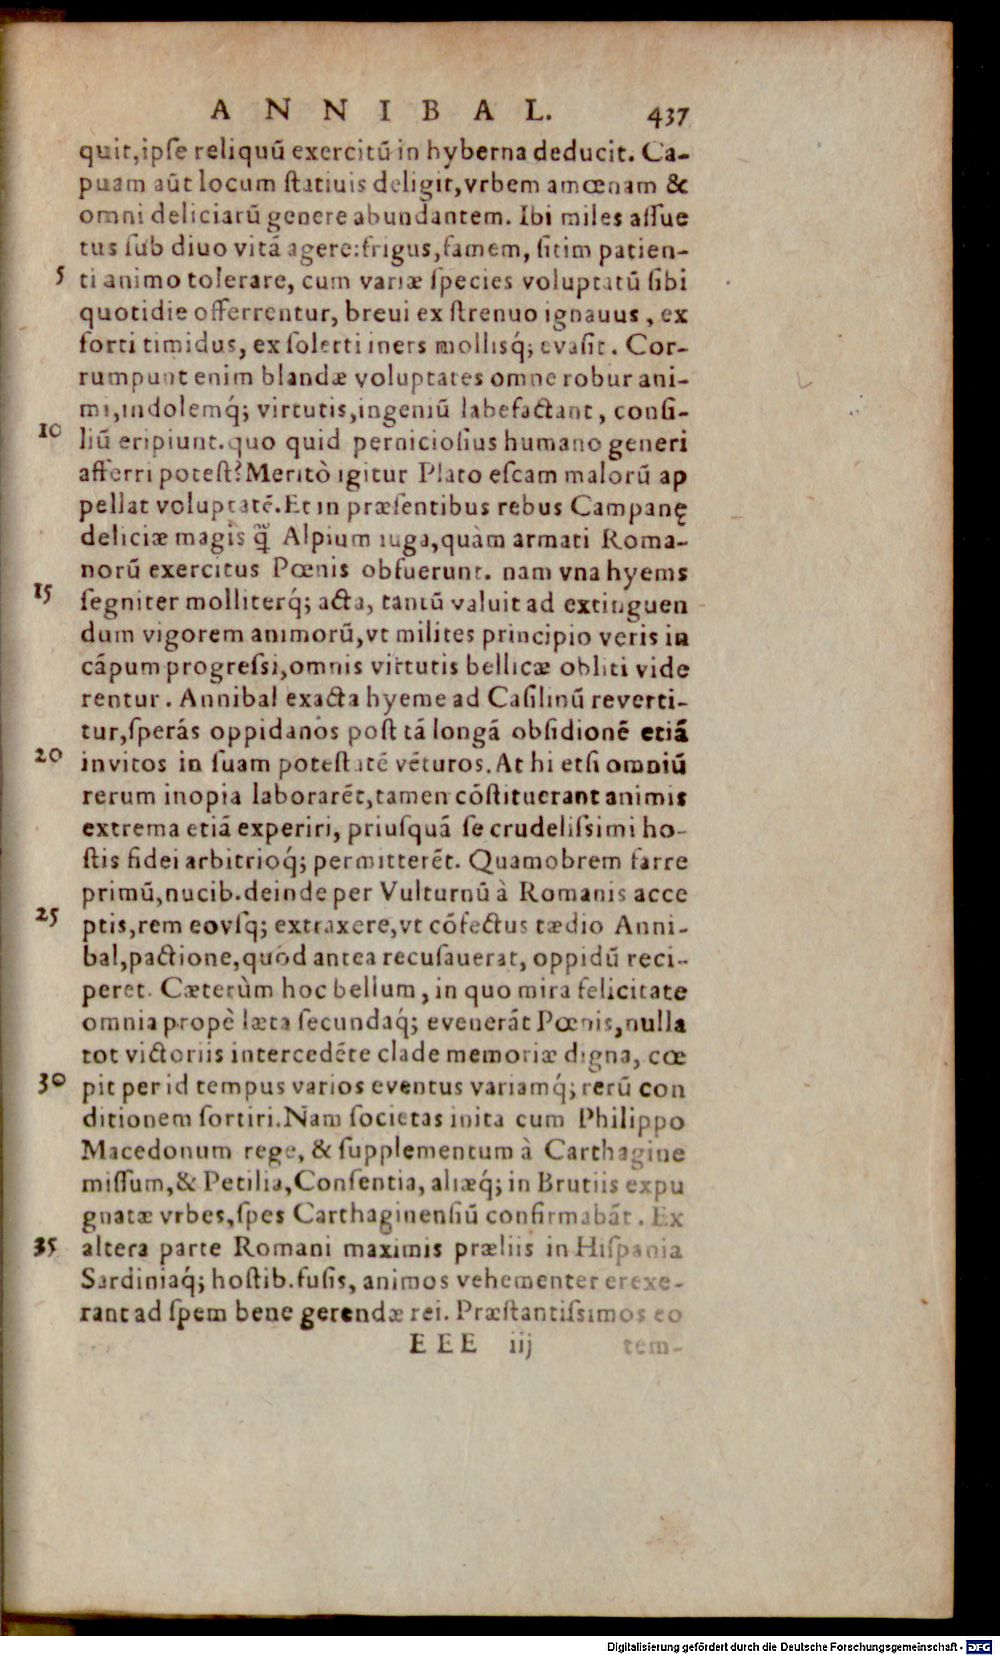 A N N I B A L. 437
quit,ipſe reliquū exercitū in hyberna deducit. Ca-
puam aūt locum ſtatiuis deligit,vrbem amœnam &
omni deliciarū genere abundantem. Ibi miles aſſue
tus ſub diuo vitā agere:frigus,famem, ſitim patien-
5 ti animo tolerare, cum variæ ſpecies voluptatū ſibi
quotidie offerrentur, breui ex ſtrenuo ignauus, ex
forti timidus, ex ſolerti iners mollisq́; evaſit. Cor-
rumpunt enim blandæ voluptates omne robur ani-
mi,indolemq́; virtutis,ingeniū labefactant, conſi-
10 liū eripiunt.quo quid pernicioſius humano generi
afferri poteſt? Meritò igitur Plato eſcam malorū ap
pellat voluptatē.Et in præſentibus rebus Campanę
deliciæ magis q̃ Alpium iuga,quàm armati Roma-
norū exercitus Pœnis obfuerunt. nam vna hyems
15 ſegniter molliterq́; acta, tantū valuit ad extinguen
dum vigorem animorū,vt milites principio veris in
cāpum progreſſi,omnis virtutis bellicæ obliti vide
rentur. Annibal exacta hyeme ad Caſilinū reverti-
tur,ſperās oppidanos poſt tā longā obſidionē etiā
20 invitos in ſuam poteſtatē vēturos. At hi etſi omniū
rerum inopia laborarēt,tamen cōſtituerant animis
extrema etiā experiri, priuſquā ſe crudeliſſimi ho-
ſtis fidei arbitrioq́; permitterēt. Quamobrem farre
primū,nucib.deinde per Vulturnū à Romanis acce
25 ptis,rem eovſq; extraxere,vt cōfectus tædio Anni-
bal,pactione,quod antea recuſauerat, oppidū reci-
peret. Cæterùm hoc bellum, in quo mira felicitate
omnia propè læta ſecundaq́; evenerāt Pœnis,nulla
tot victoriis intercedēte clade memoriæ digna, cœ
30 pit per id tempus varios eventus variamq́; rerū con
ditionem ſortiri.Nam ſocietas inita cum Philippo
Macedonum rege, & ſupplementum à Carthagine
miſſum,& Petilia,Conſentia, aliæq́; in Brutiis expu
gnatæ vrbes,ſpes Carthaginenſiū confirmabāt. Ex
35 altera parte Romani maximis præliis in Hiſpania
Sardiniaq́; hoſtib.fuſis, animos vehementer erexe-
rant ad ſpem bene gerendæ rei. Præſtantiſſimos eo
E E E iij tem-
Digitalisierung gefördert durch die Deutsche Forschungsgemeinschaft - DFG